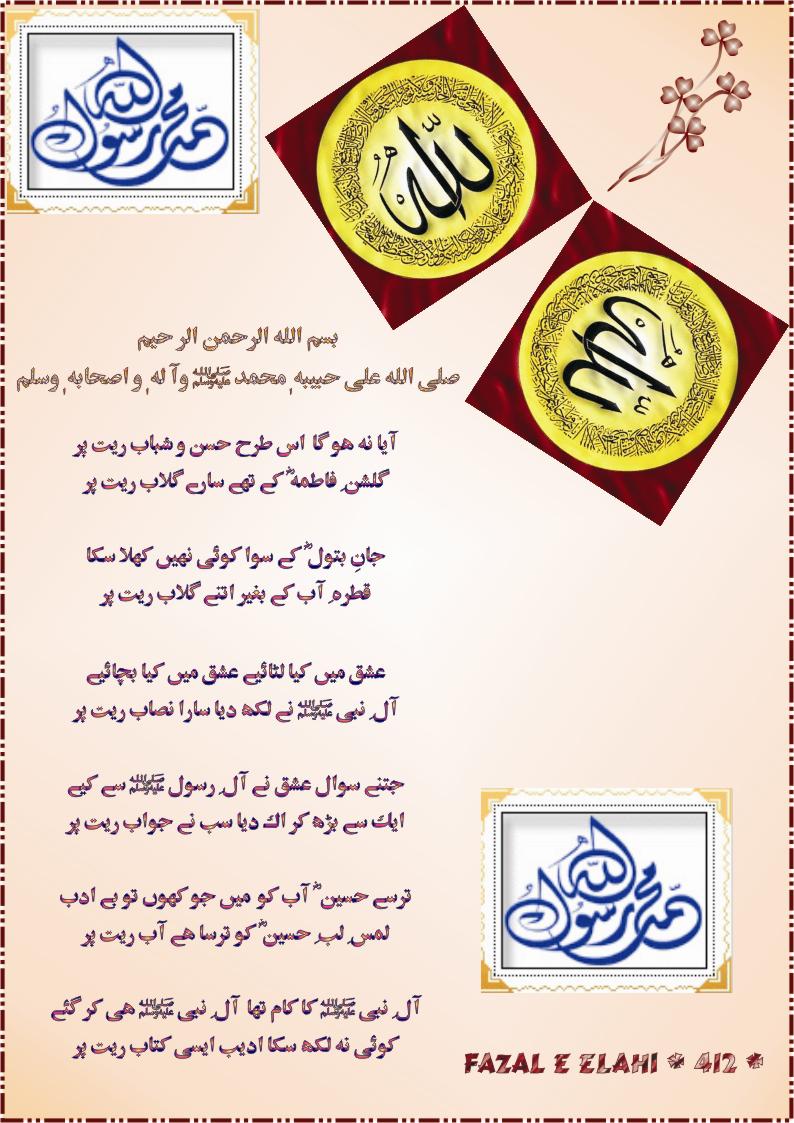 محمد رسول الله
الله
الله
بسم الله الرحمن الرحيم
صلى الله على حبيبهٖ محمد ﷺ وآلهٖ واصحابهٖ وسلم
آیا نہ ہو گا اس طرح حسن و شباب ریت پر
گلشنِ فاطمہؓ کے تھے سارے گلاب ریت پر
جانِ بتولؓ کے سوا کوئی نہیں کھلا سکا
قطرہِ آب کے بغیر اتنے گلاب ریت پر
عشق میں کیا لٹائیے عشق میں کیا بچائیے
آلِ نبی ﷺ نے لکھ دیا سارا نصاب ریت پر
جتنے سوال عشق نے آلِ رسول ﷺ سے کیے
ایک سے بڑھ کر اک دیا سب نے جواب ریت پر
ترسے حسینؓ آب کو میں جو کہوں تو بے ادب
لمسِ لبِ حسینؓ کو ترسا ہے آب ریت پر
آلِ نبی ﷺ کا کام تھا آلِ نبی ﷺ ہی کر گئے
کوئی نہ لکھ سکا ادیب ایسی کتاب ریت پر
محمد رسول الله
FAZAL E ELAHI * 412 *